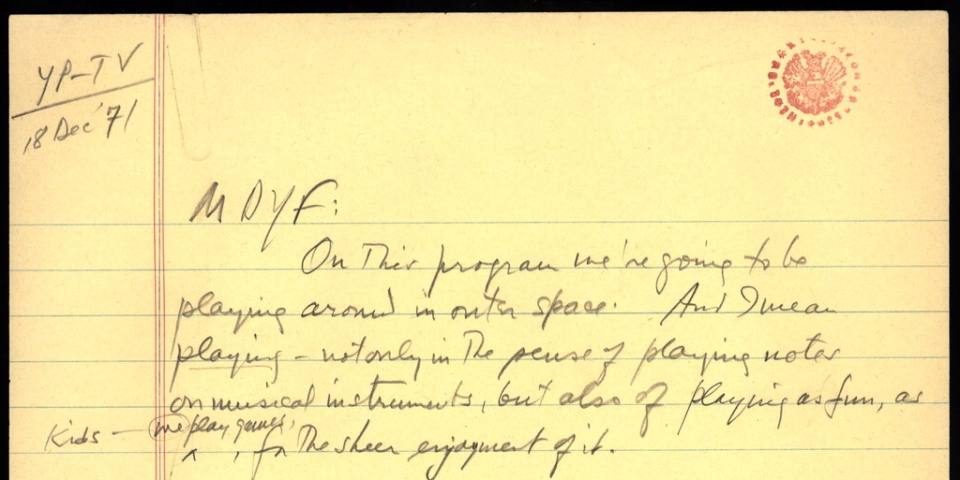 YP-TV
18 Dec '71
M D Y F:
On this program we're going to be
playing around in outer space. And I mean
playing – not only in the sense of playing notes
on musical instruments, but also of playing as fun, as
Kids — we play games,
^ , for the sheer enjoyment of it.